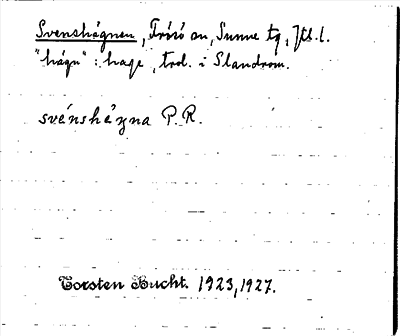 Svenshägnen, Frösö sn, Sunne tg, Jtl. l.
"hägn": hage, trol. i Slandrom.
svénshä̀gna P.R.
Torsten Bucht. 1923, 1927.